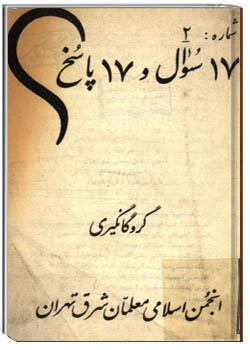 شماره: ۲
۱۷ سؤال و ۱۷ پاسخ ؟
گروگانگیری
انجمن اسلامی معلمان شرق تهران